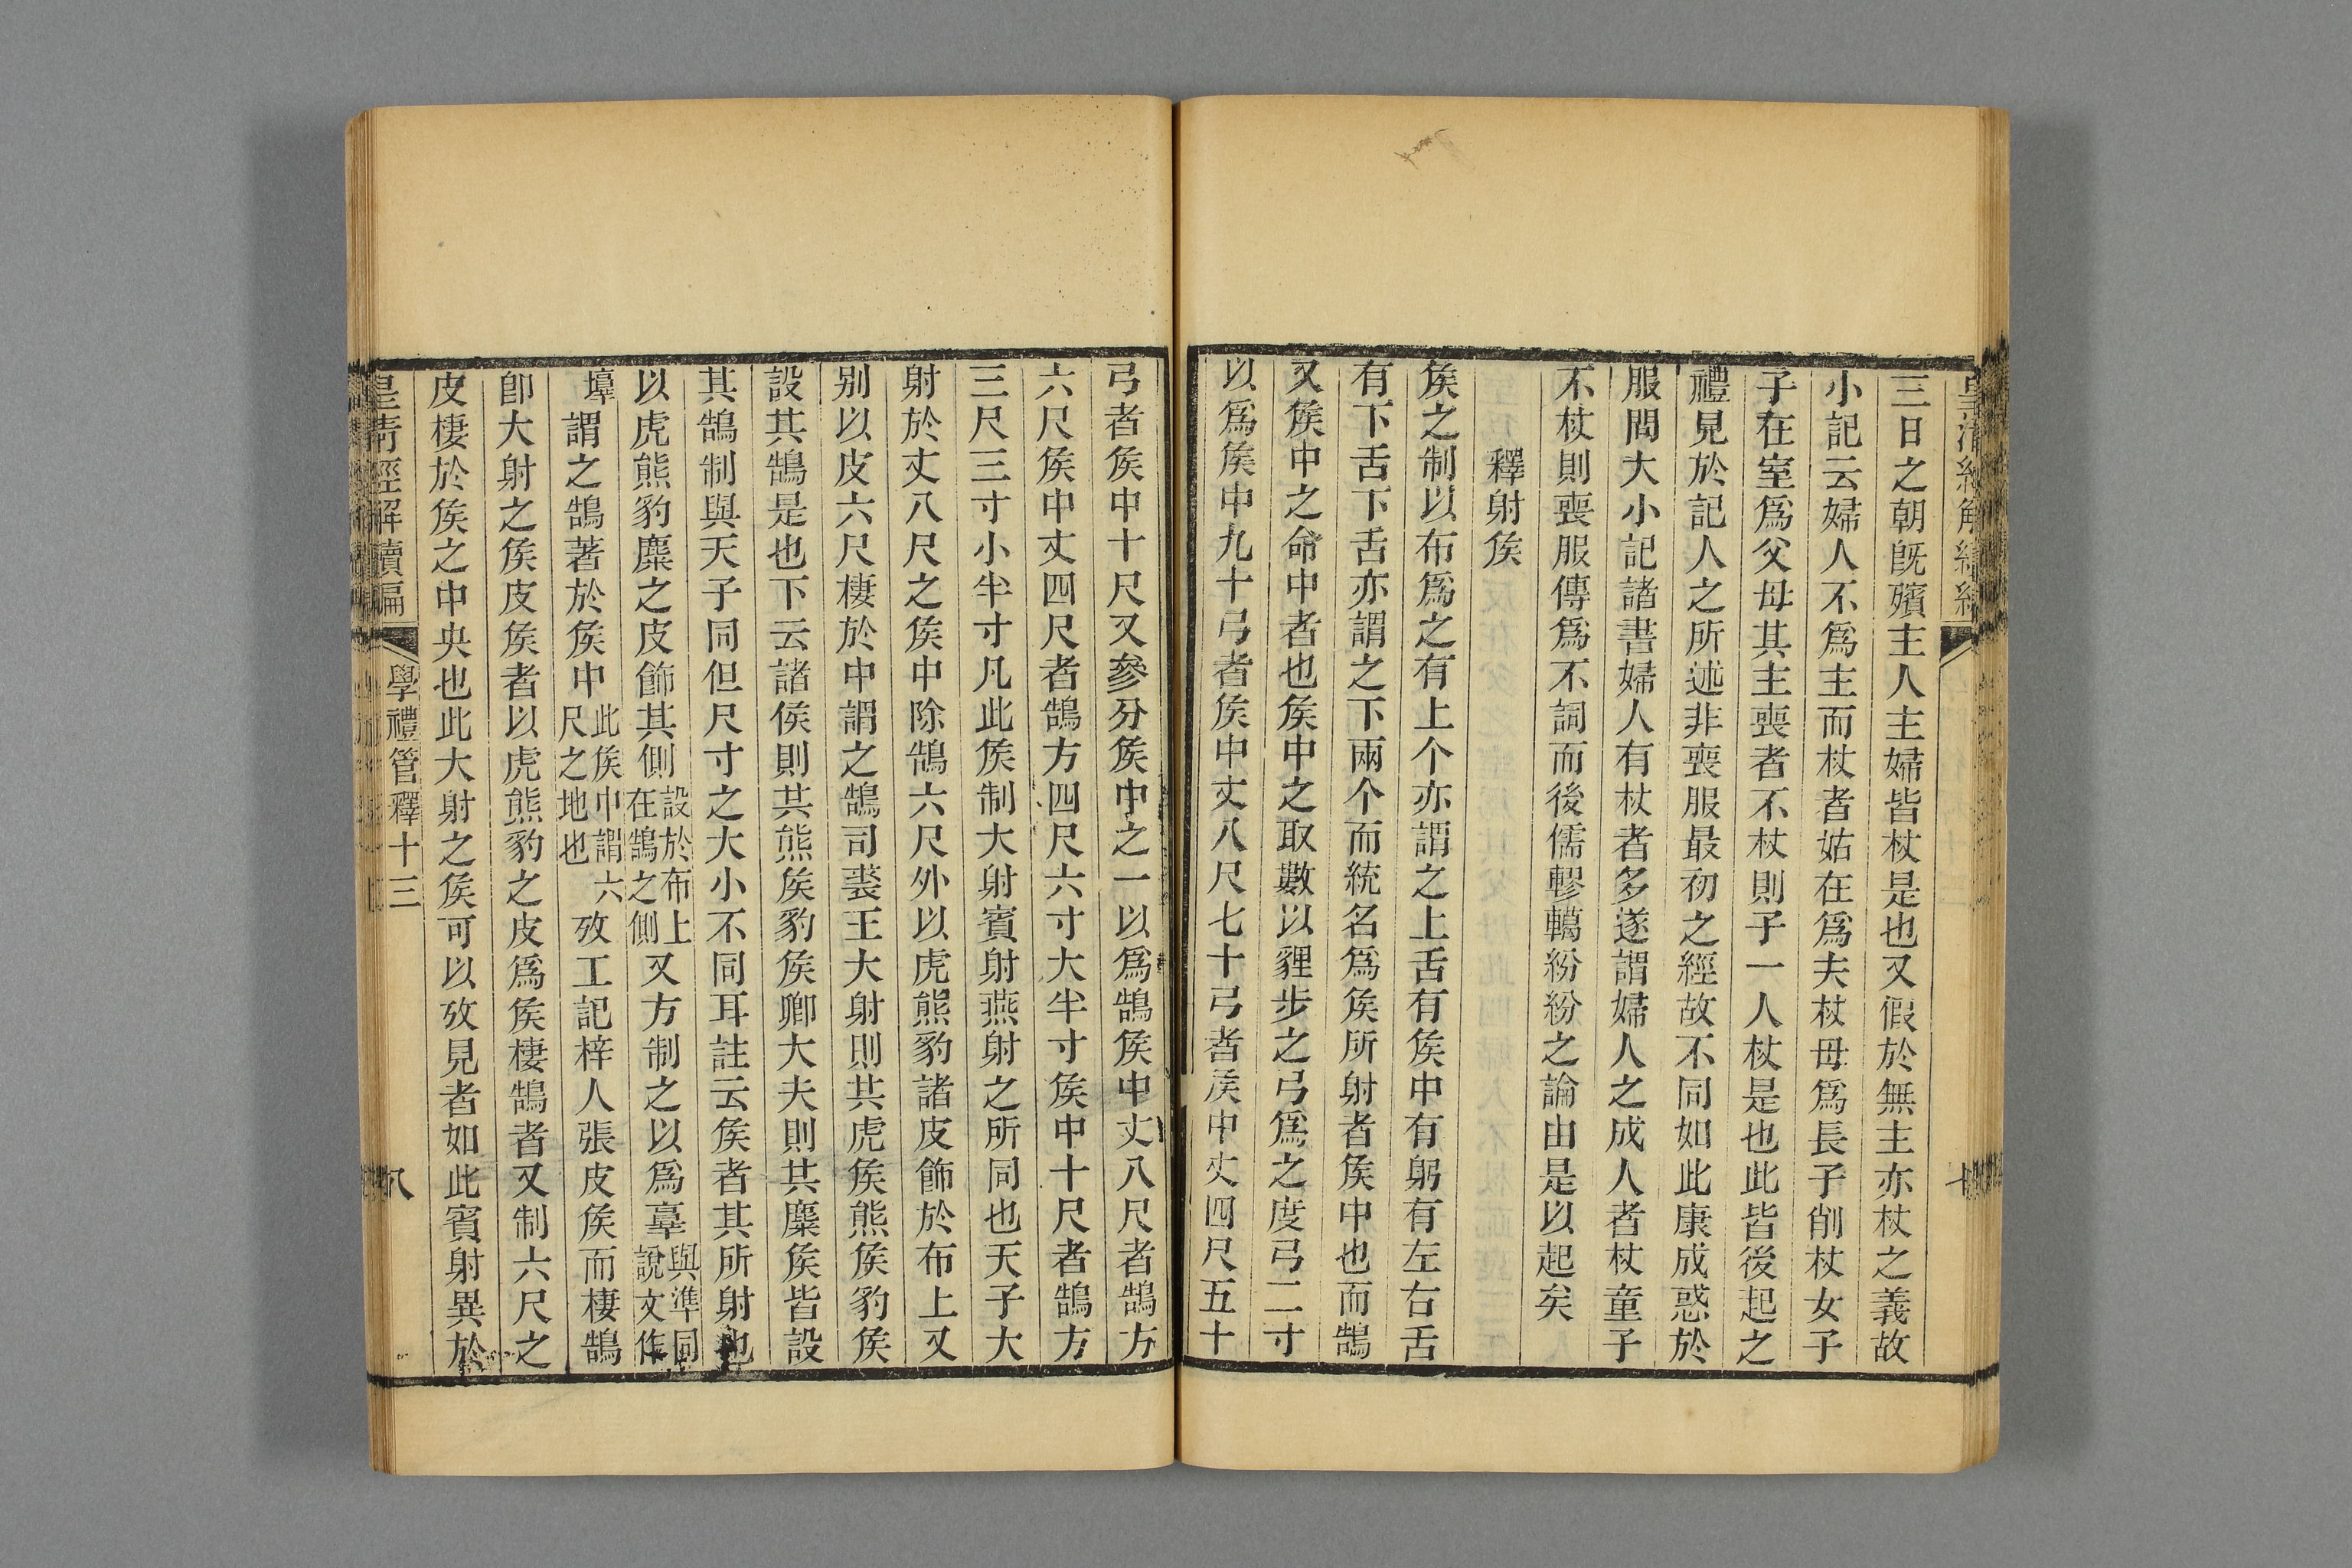 三日之朝旣殯主人主婦皆杖是也又假於無主亦杖之義故
小記云婦人不爲主而杖者姑在爲夫杖母爲長子削杖女子
子在室爲父母其主喪者不杖則子一人杖是也此皆後起之
禮見於記人之所述非喪服最初之經故不同如此康成惑於
服問大小記諸書婦人有杖者多遂謂婦人之成人者杖童子
不杖則喪服傳爲不詞而後儒轇轕紛紛之論由是以起矣
釋射矦
矦之制以布爲之有上个亦謂之上舌有矦中有躬有左右舌
有下舌下舌亦謂之下兩个而統名爲矦所射者矦中也而鵠
又矦中之命中者也矦中之取數以貍步之弓爲之度弓二寸
以爲矦中九十弓者矦中丈八尺七十弓者矦中丈四尺五十
弓者矦中十尺又參分矦中之一以爲鵠矦中丈八尺者鵠方
六尺矦中丈四尺者鵠方四尺六寸大半寸矦中十尺者鵠方
三尺三寸小半寸凡此矦制大射賓射燕射之所同也天子大
射於丈八尺之矦中除鵠六尺外以虎熊豹諸皮飾於布上又
别以皮六尺棲於中謂之鵠司裘王大射則共虎矦熊矦豹矦
設其鵠是也下云諸侯則共熊矦豹矦卿大夫則共麋矦皆設
其鵠制與天子同但尺寸之大小不同耳註云矦者其所射也
以虎熊豹麋之皮飾其側設於布上在鵠之側又方制之以爲𦤎與準同說文作
𡓸謂之鵠著於矦中此矦中謂六尺之地也攷工記梓人張皮矦而棲鵠
卽大射之矦皮矦者以虎熊豹之皮爲矦棲鵠者又制六尺之
皮棲於矦之中央也此大射之矦可以攷見者如此賓射異於
皇清經解續編
學禮管釋十三
八